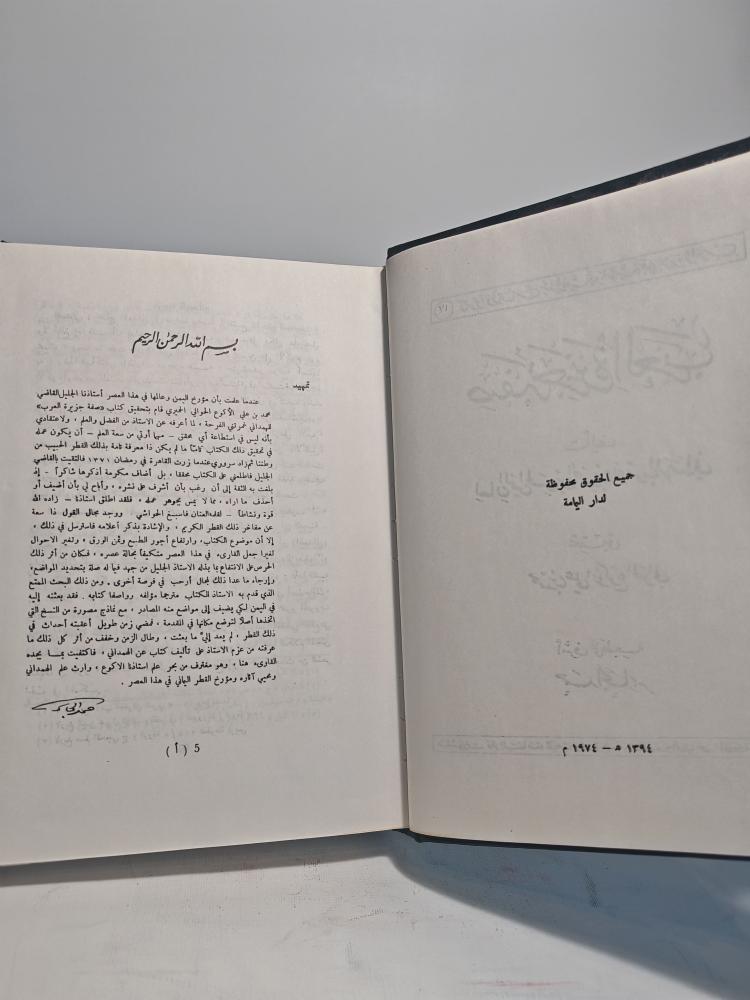 جميع الحقوق محفوظة
لدار اليمامة
١٣٩٤ ه – ١٩٧٤ م
بسم الله الرحمن الرحيم
تمهيد :
عندما علمت بأن مؤرخ اليمن وعالمها في هذا العصر أستاذنا الجليل القاضي
محمد بن علي الأكوع الحوالي الحميري قام بتحقيق كتاب «صفة جزيرة العرب»
للهمداني غمرتني الفرحة ، لما أعرفه عن الاستاذ من الفضل والعلم ، ولاعتقادي
بأنه ليس في استطاعة أي محقق – مهما أوتي من سعة العلم – أن يكون عمله
في تحقيق ذلك الكتاب كاملا ما لم يكن ذا معرفة تامة بذلك القطر الحبيب من
وطننا ثم زاد سروري عندما زرت القاهرة في رمضان ١٣٧١ فالتقيت بالقاضي
الجليل فاطلعني على الكتاب محققا ، بل أضاف مكرمة أذكرها شاكراً – إذ
بلغت به الثقة إلى أن رغب بأن أشرف على نشره ، وأباح لي بأن أضيف أو
أحذف ما اراه ، مما لا يمس بجوهر عمله ، فلقد اطلق استاذنا – زاده الله
قوة ونشاطاً – لقلمه العنان فأسبغ الحواشي ووجد مجال القول ذا سعة
عن مفاخر ذلك القطر الكريم ، والإشادة بذكر أعلامه فاسترسل في ذلك ،
إلا أن موضوع الكتاب، وارتفاع أجور الطبع وثمن الورق ، وتغير الاحوال
تغيرا جعل القارىء في هذا العصر متكيفاً بحالة عصره ، فكان من أثر ذلك
الحرص على الانتفاع بما بذله الاستاذ الجليل من جهد فيما له صلة بتحديد المواضع،
وإرجاء ما عدا ذلك لمجال أرحب في فرصة أخرى . ومن ذلك البحث الممتع
الذي قدم به الاستاذ الكتاب مترجما مؤلفه وواصفا كتابه . فقد بعثته إليه
في اليمن لكي يضيف إلى مواضع منه المصادر ، مع نماذج مصورة من النسخ التي
اتخذها أصلا لتوضع مكانها في المقدمة ، فمضى زمن طويل أعقبته أحداث في
ذلك القطر ، لم يعد إليّ ما بعثت ، وطال الزمن وخفف من أثر كل ذلك ما
عرفته من عزم الاستاذ على تأليف كتاب عن الهمداني ، فاكتفيت بما يجده
القارىء هنا ، وهو مغترف من بحر علم استاذنا الاكوع ، وارث علم الهمداني
ومحيي آثاره ومؤرخ القطر اليماني في هذا العصر .
حمد الجاسر
5 ( أ )